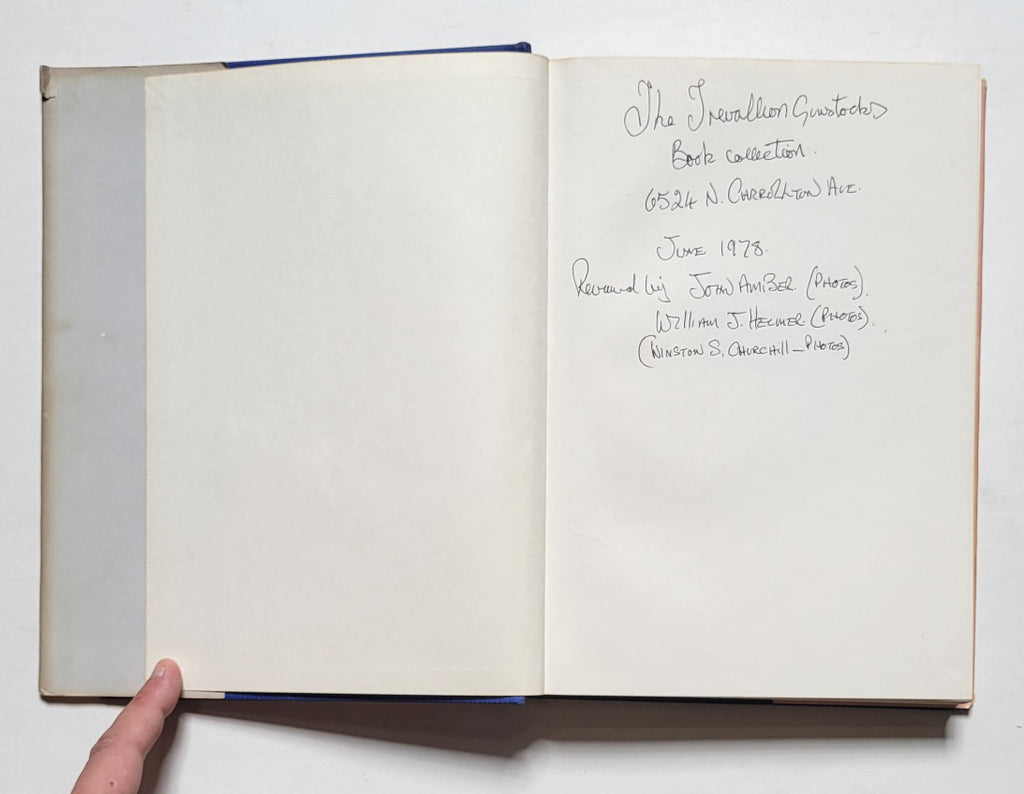 The Trevallion Gunstocks
Book collection.
6524 N. CARROLLTON AVE.
JUNE 1978.
Reviewed by JOHN AMBER (PHOTOS).
WILLIAM J. HELMER (PHOTOS).
(WINSTON S. CHURCHILL - PHOTOS)